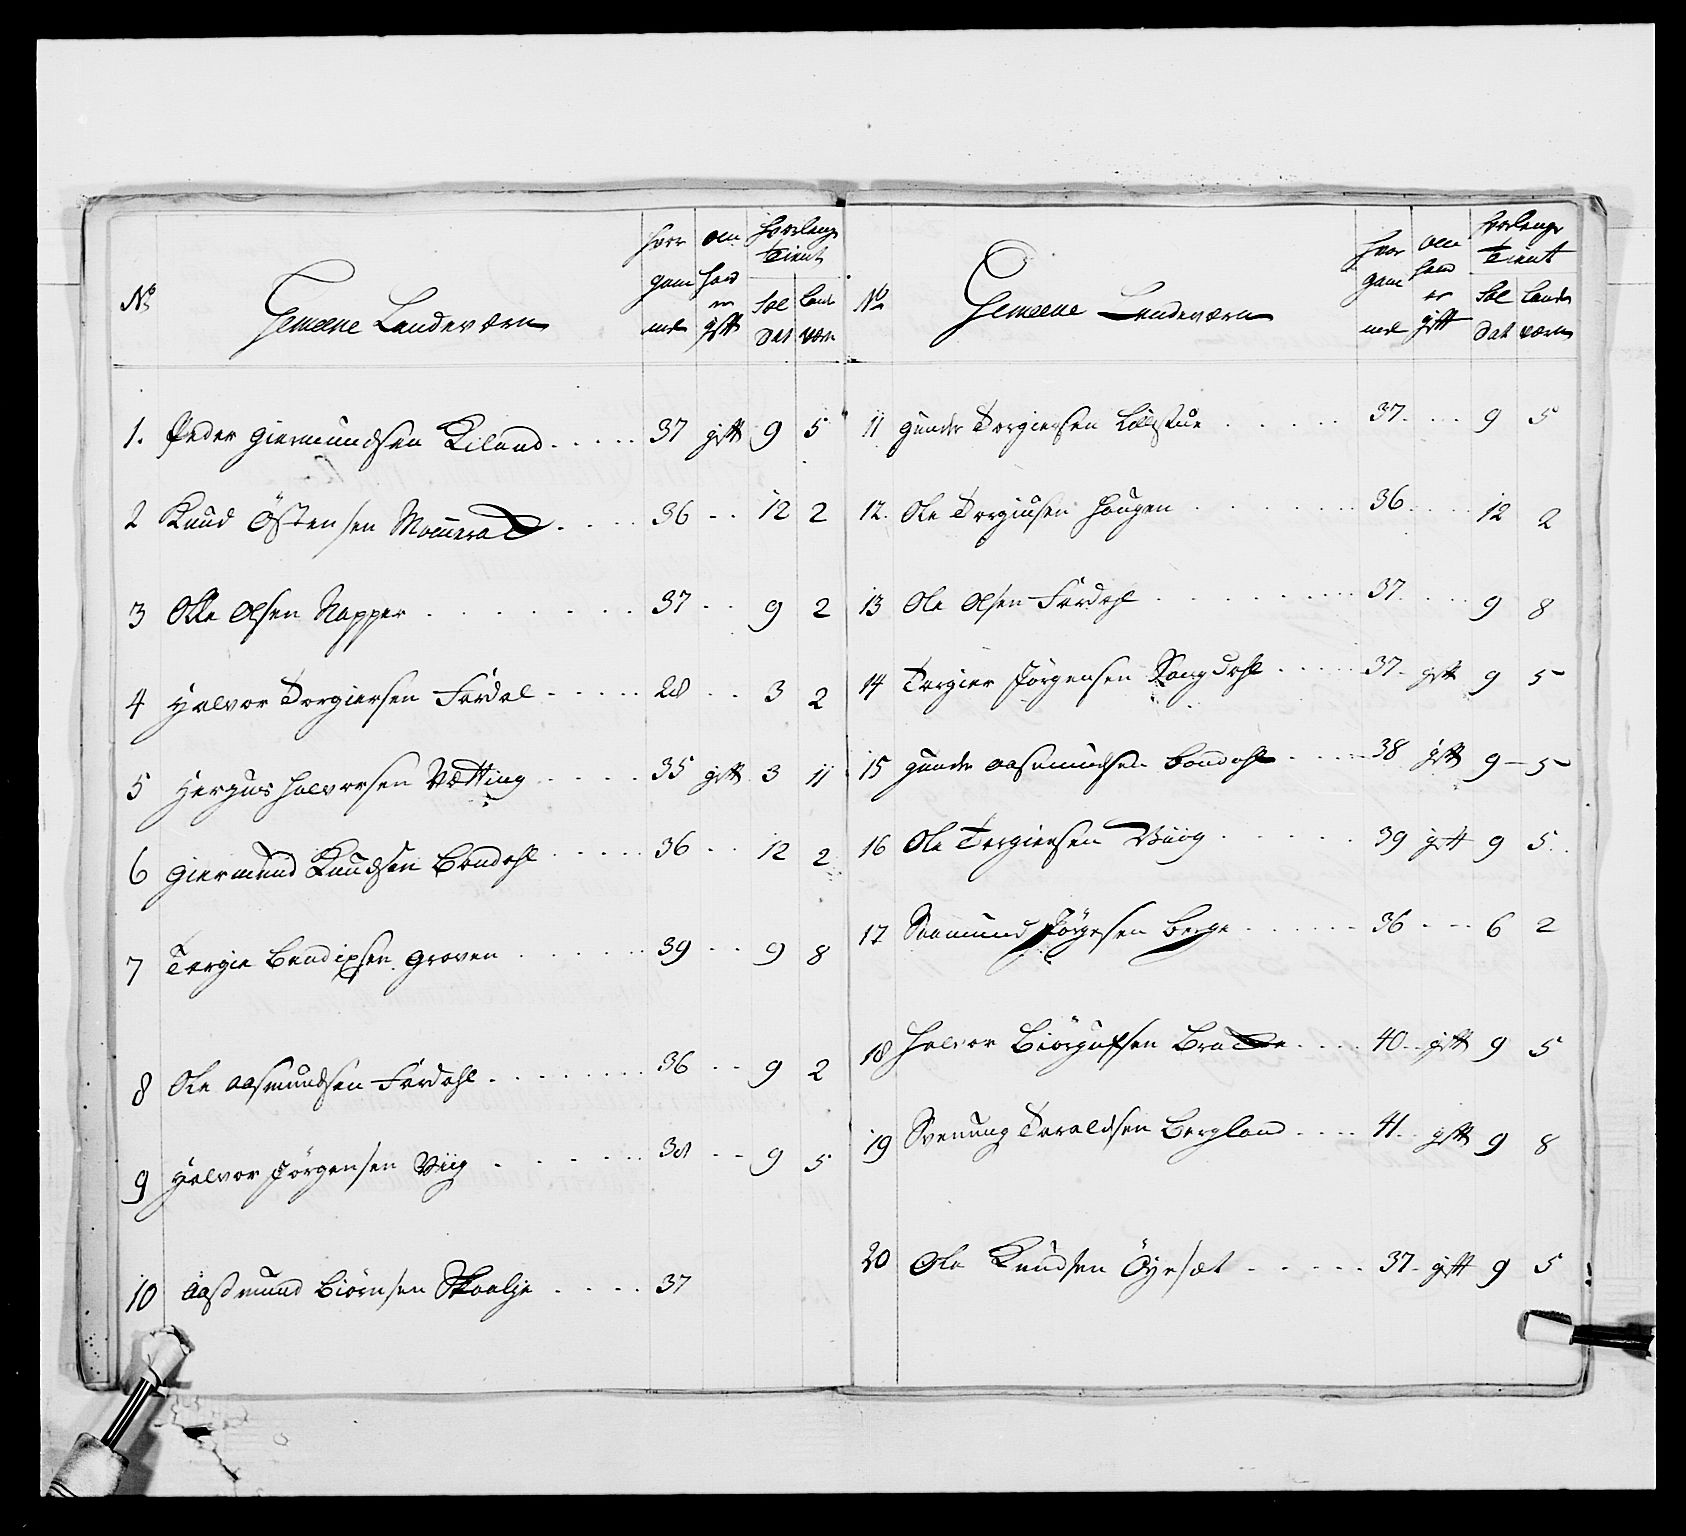 No
Gemeene Landeværn
hvor
gam
mel
om
hand
er
gift
hvorlenge
tient
Sol
dat
Lande
værn
1. Peder Giermundsen Kiland 37 gift 9 5
2 Knud Östensen Mommerak 36 12 2
3 Olle Olsen Napper 37 9 2
4 Halvor Torgiersen Fordal 28 3 2
5 Hergus Halvorsen Vetting 35 gift 3 11
6 Giermund Knudsen Bondahl 36 12 2
7 Torgie Bendixsen Groven 39 9 8
8 Ole Aasmundsen Fordahl 36 9 2
9 Halvor Jörgensen Viig 38 9 5
10 Aasmund Biörnsen Skoalje 37
No
Gemeene Landeværn
hvor
gam
mel
om
hand
er
gift
hvorlenge
tient
Sol
dat
Lande
værn
11 Gunder Torgiersen 37 9 5
12. Ole Torgiusen Haugen 36 12 2
13 Ole Olsen Fordahl 37 9 8
14 Torgier Jörgensen Langdahl 37 gift 9 5
15 Gunder Aasmundsen Bondahl 38 gift 9 5
16 Ole Torgiersen Viig 39 gift 9 5
17 Saamund Jörgesen Berge 36 6 2
18 Halvor Biörgufsen 40 gift 9 5
19 Svenung Taraldsen Bergland 41 gift 9 8
20 Ole Knudsen Öyesæt 37 gift 9 5